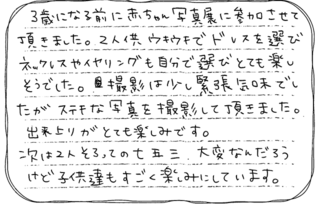 3歳になる前に赤ちゃん写真展に参加させて
頂きました。2人供ウキウキでドレスを選び
ネックレスやイヤリングも自分で選びとても楽し
そうでした。撮影は少し緊張気味でし
たがステキな写真を撮影して頂きました。
出来上りがとても楽しみです。
次は2人そろっての七五三、大変なんだろう
けど子供達もすごく楽しみにしています。